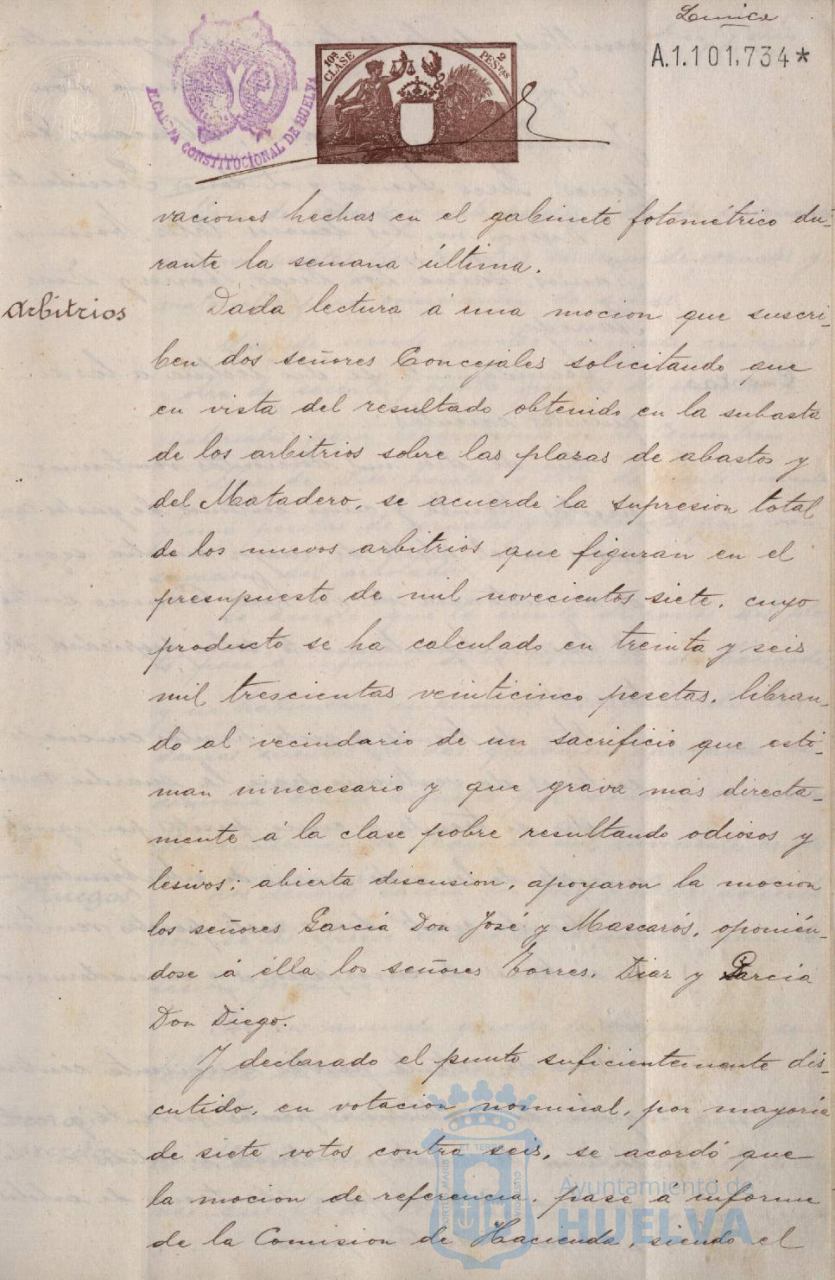 A.1.101,734*
10ª CLASE
2 PESETAS
ALCALDIA CONSTITUCIONAL DE HUELVA
vaciones hechas en el gabinete fotométrico du-
rante la semana última.
Arbitrios
Dada lectura á una mocion que suscri-
ben dos señores Concejales solicitando que
en vista del resultado obtenido en la subasta
de los arbitrios sobre las plazas de abastos y
del Matadero, se acuerde la supresion total
de los nuevos arbitrios que figuran en el
presupuesto de mil novecientos siete, cuyo
producto se ha calculado en treinta y seis
mil trescientas veinticinco pesetas, libran-
do al vecindario de un sacrificio que esti-
man innecesario y que grava mas directa-
mente á la clase pobre resultando odiosos y
lesivos; abierta discusion, apoyaron la mocion
los señores Garcia Don José y Mascarós, oponién-
dose á élla los señores Torres, Diaz y Garcia
Don Diego.
Y declarado el punto suficientemente dis-
cutido, en votacion nominal, por mayoria
de siete votos contra seis, se acordó que
la mocion de referencia, pase a informe
de la Comision de Hacienda, siendo el
Ayuntamiento de
HUELVA